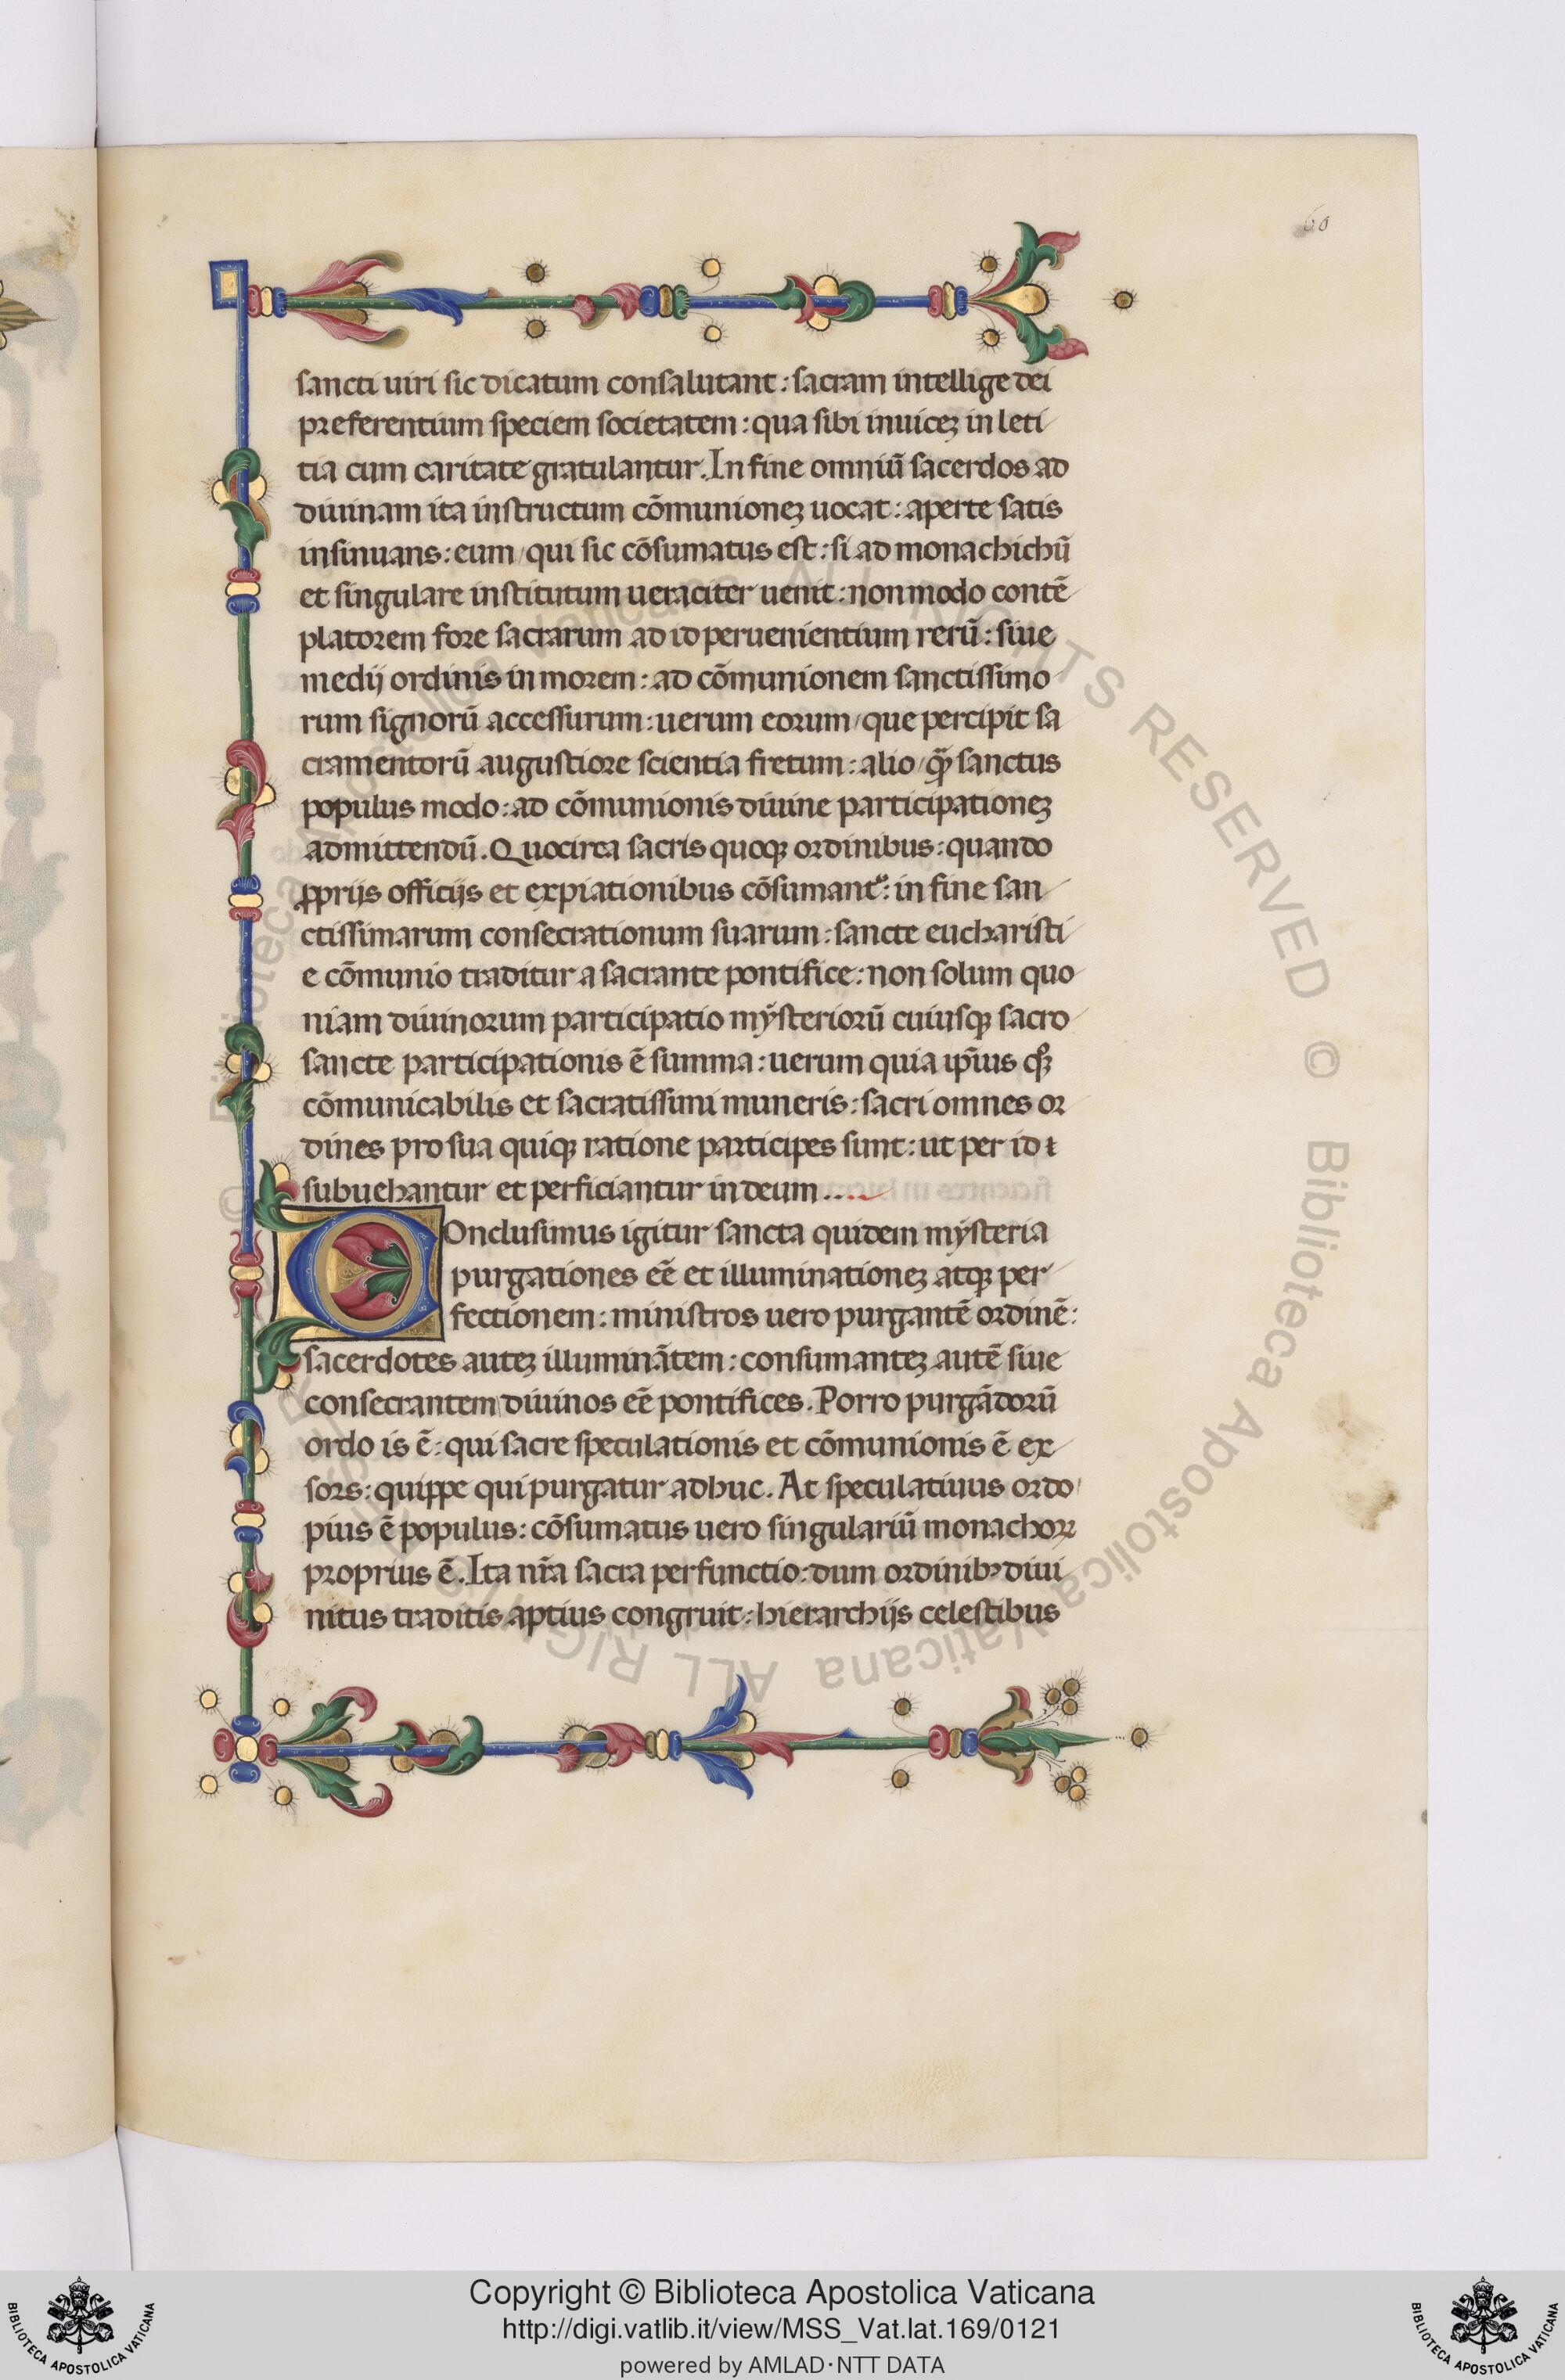 60
sancti uiri sic dicatum consalutant: sacram intellige dei
preferentium speciem societatem: qua sibi inuiceꝫ in leti
tia cum caritate gratulantur. In fine omniū sacerdos ad
diuinam ita instructum cōmunioneꝫ uocat: aperte satis
insinuans: eum/qui sic cōsumatus est: si ad monachichū
et singulare institutum ueraciter uenit: non modo contē
platorem fore sacrarum ad id peruenientium rerū: siue
medij ordinis in morem: ad cōmunionem sanctissimo
rum signorū accessurum: uerum eorum/que percipit sa
cramentorū augustiore scientia fretum: alio/ꝙ̄ sanctus
populus modo: ad cōmunionis diuine participationeꝫ
admittendū. Quocirca sacris quoqꝫ ordinibus: quando
ꝓprijs officijs et expiationibus cōsumant᷒: in fine san
ctissimarum consecrationum suarum: sancte eucharisti
e cōmunio traditur a sacrante pontifice: non solum quo
niam diuinorum participatio mẏsteriorū cuiusqꝫ sacro
sancte participationis ē summa: uerum quia ip̄ius qꝫ
cōmunicabilis et sacratissimi muneris: sacri omnes or
dines pro sua quiqꝫ ratione participes sunt: ut per id ⁊
subuehantur et perficiantur in deum....
COnclusimus igitur sancta quidem mẏsteria
purgationes eē et illuminationeꝫ atqꝫ per
fectionem: ministros uero purgantē ordinē:
sacerdotes auteꝫ illuminātem: consumanteꝫ autē siue
consecrantem diuinos eē pontifices. Porro purgādorū
ordo is ē: qui sacre speculationis et cōmunionis ē ex
sors: quippe qui purgatur adhuc. At speculatiuus ordo
pius ē populus: cōsumatus uero singulariū monachoꝝ
proprius ē. Ita nr̄a sacra perfunctio: dum ordinibꝰ diui
nitus traditis aptius congruit: hierarchijs celestibus
© Biblioteca Apostolica Vaticana ALL RIGHTS RESERVED © Biblioteca Apostolica Vaticana ALL RIGHTS RESERVED
Copyright © Biblioteca Apostolica Vaticana
http://digi.vatlib.it/view/MSS_Vat.lat.169/0121
powered by AMLAD·NTT DATA
BIBLIOTECA APOSTOLICA VATICANA
BIBLIOTECA APOSTOLICA VATICANA